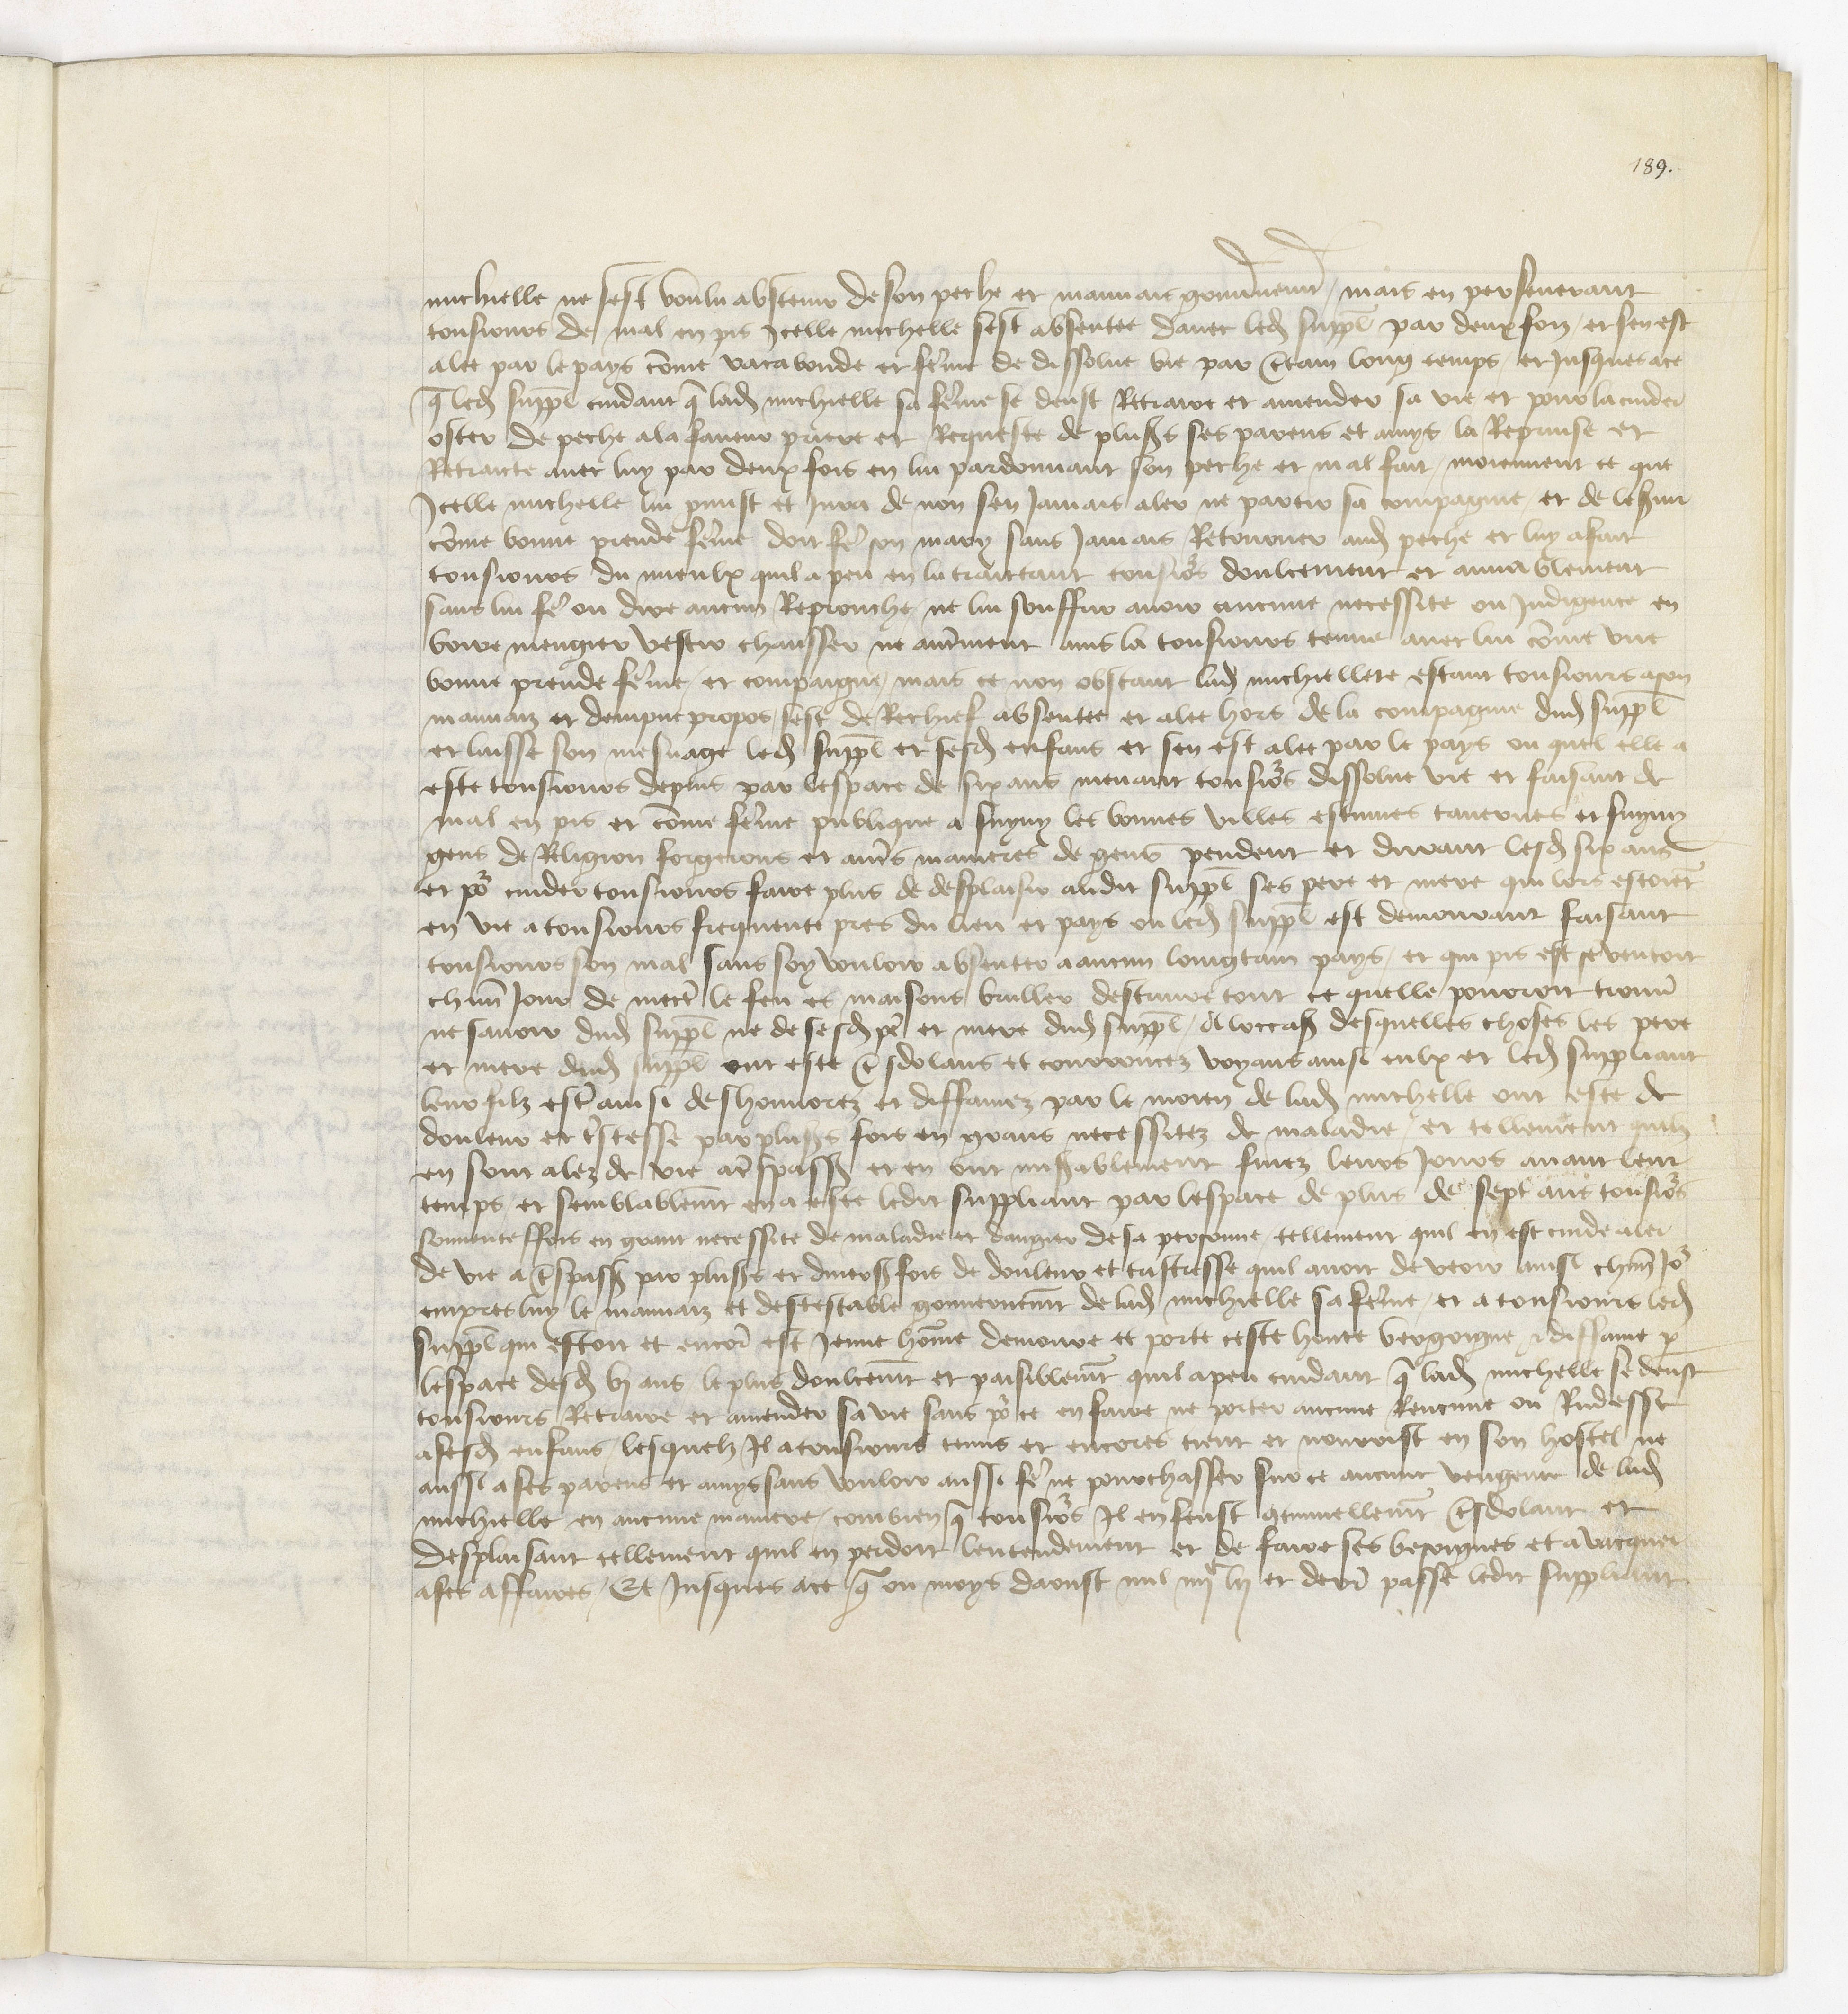 189.
michielle ne sest voulu abstenir de son peche et mauvais gouvernemt / mais en perseverant
tousiours de mal en pis Icelle michelle sest absentee davec led suppl par deux foiz / et sen est
alee par le pays cōme vacabonde et fēme de dissolue vie par ctain long temps / et Jusques ace
q̄ led suppl cuidant q̄ lad michielle sa fēme se deust Retraire et amender sa vie et pour la cuider
oster de peche ala faveur priere et Requeste de plus̄s ses parens et amys la Reprinse et
Retraicte avec luy par deux fois en lui pardonnant son peche et mal fait / moiennent ce que
Icelle michelle lui p̄mist et Jura de non sen Jamais aler ne partir sa compagnie / et de le s̄vir
cōme bonne preude fēme doit fē son mary sans Jamais Retourner aud peche et luy a fait
tousiours du mieulx quil a peu en la traictant tousiōs doulcement et amiablement
sans lui fē ou dire aucun Reprouche / ne lui souffrir avoir aucune necessite ou Indigence en
boire mengier vestir chausser ne autrement ains la tousiours tenue avec lui cōme une
bonne preude fēme / et compaigne / mais ce non obstant lad michiellete estant tousiours ason
mauvaiz et dempne propos / sest de Rechief absentee et alee hors de la compagnie dud suppl
et laisse son mesnage led suppl et sesd enfans et sen est alee par le pays ou quel elle a
este tousiours depuis par lespace de six ans menant tousiōs dissolue vie et faisant de
mal en pis et cōme fēme publique a suyvy les bonnes villes estuves tavernes et suyvy
gens de Religion forgerons et autrēs manieres de gens pendent et durant lesd six ans
et pō cuider tousiours faire plus de desplaisir audit suppl ses pere et mere qui lors estoiēt
en vie a tousiours frequente pres du lieu et pays ou led suppl est demourant faisant
tousiours son mal sans soy vouloir absenter a aucun loingtain pays / et qui pis est se ventoit
chūn Jour de mectē le feu es maisons bruller destruire tout ce quelle pourroit trouvē
ne savoir dud suppl ne de sesd pē et mere dud suppl / A loccas̄ desquelles choses les pere
et mere dud suppl ont este t̄sdolans et courroucez voyans ainsi eulx et led suppliant
leur filz estē ainsi deshonnorez et diffamez par le moien de lad michelle ont este de
douleur et tstesse par plus̄s fois en grans necessitez de maladie / et tellement quilz
en sont alez de vie at̄spass̄ et en ont mis̄ablement finez leurs Jours avant leur
temps et semblablemt en a este ledit suppliant par lespace de plus de sept ans tousiōs
souventeffois en grant necessite de maladie et dangier de sa personne / tellement quil en est cuide aler
de vie a t̄spass̄ par plus̄s et divers̄ fois de douleur et tristresse quil avoit de veoir ainsi chūn Jō
empres luy le mauvaiz et destestable gouvernemt de lad michielle sa fēme / et a tousiours led
suppl qui estoit et encoē est Jeune hōme demoure et porte ceste honte vergoigne & diffame p
lespace desd vj ans le plus doulcemt et paisiblemt quil a peu cuidant q̄ lad michelle se deust
tousiours Retraire et amender sa vie sans pō ce en faire ne porter aucune Rencune ou Rudesse
asesd enfans / lesquelz Il a tousiours tenus et encores tient et nourrist en son hostel ne
aussi a ses parens et amys sans vouloir aussi fē ne pourchasser sur ce aucune vengence de lad
michielle en aucune maniere / combien q̄ tousiōs Il en feust t̄sdolant et
desplaisant tellement quil en perdoit lentendement et de faire ses besoignes et a vacquer
ases affaires / Et Jusques ace q̄ ou moys daoust mil iiijc lij et derr̄ passe ledit suppliant